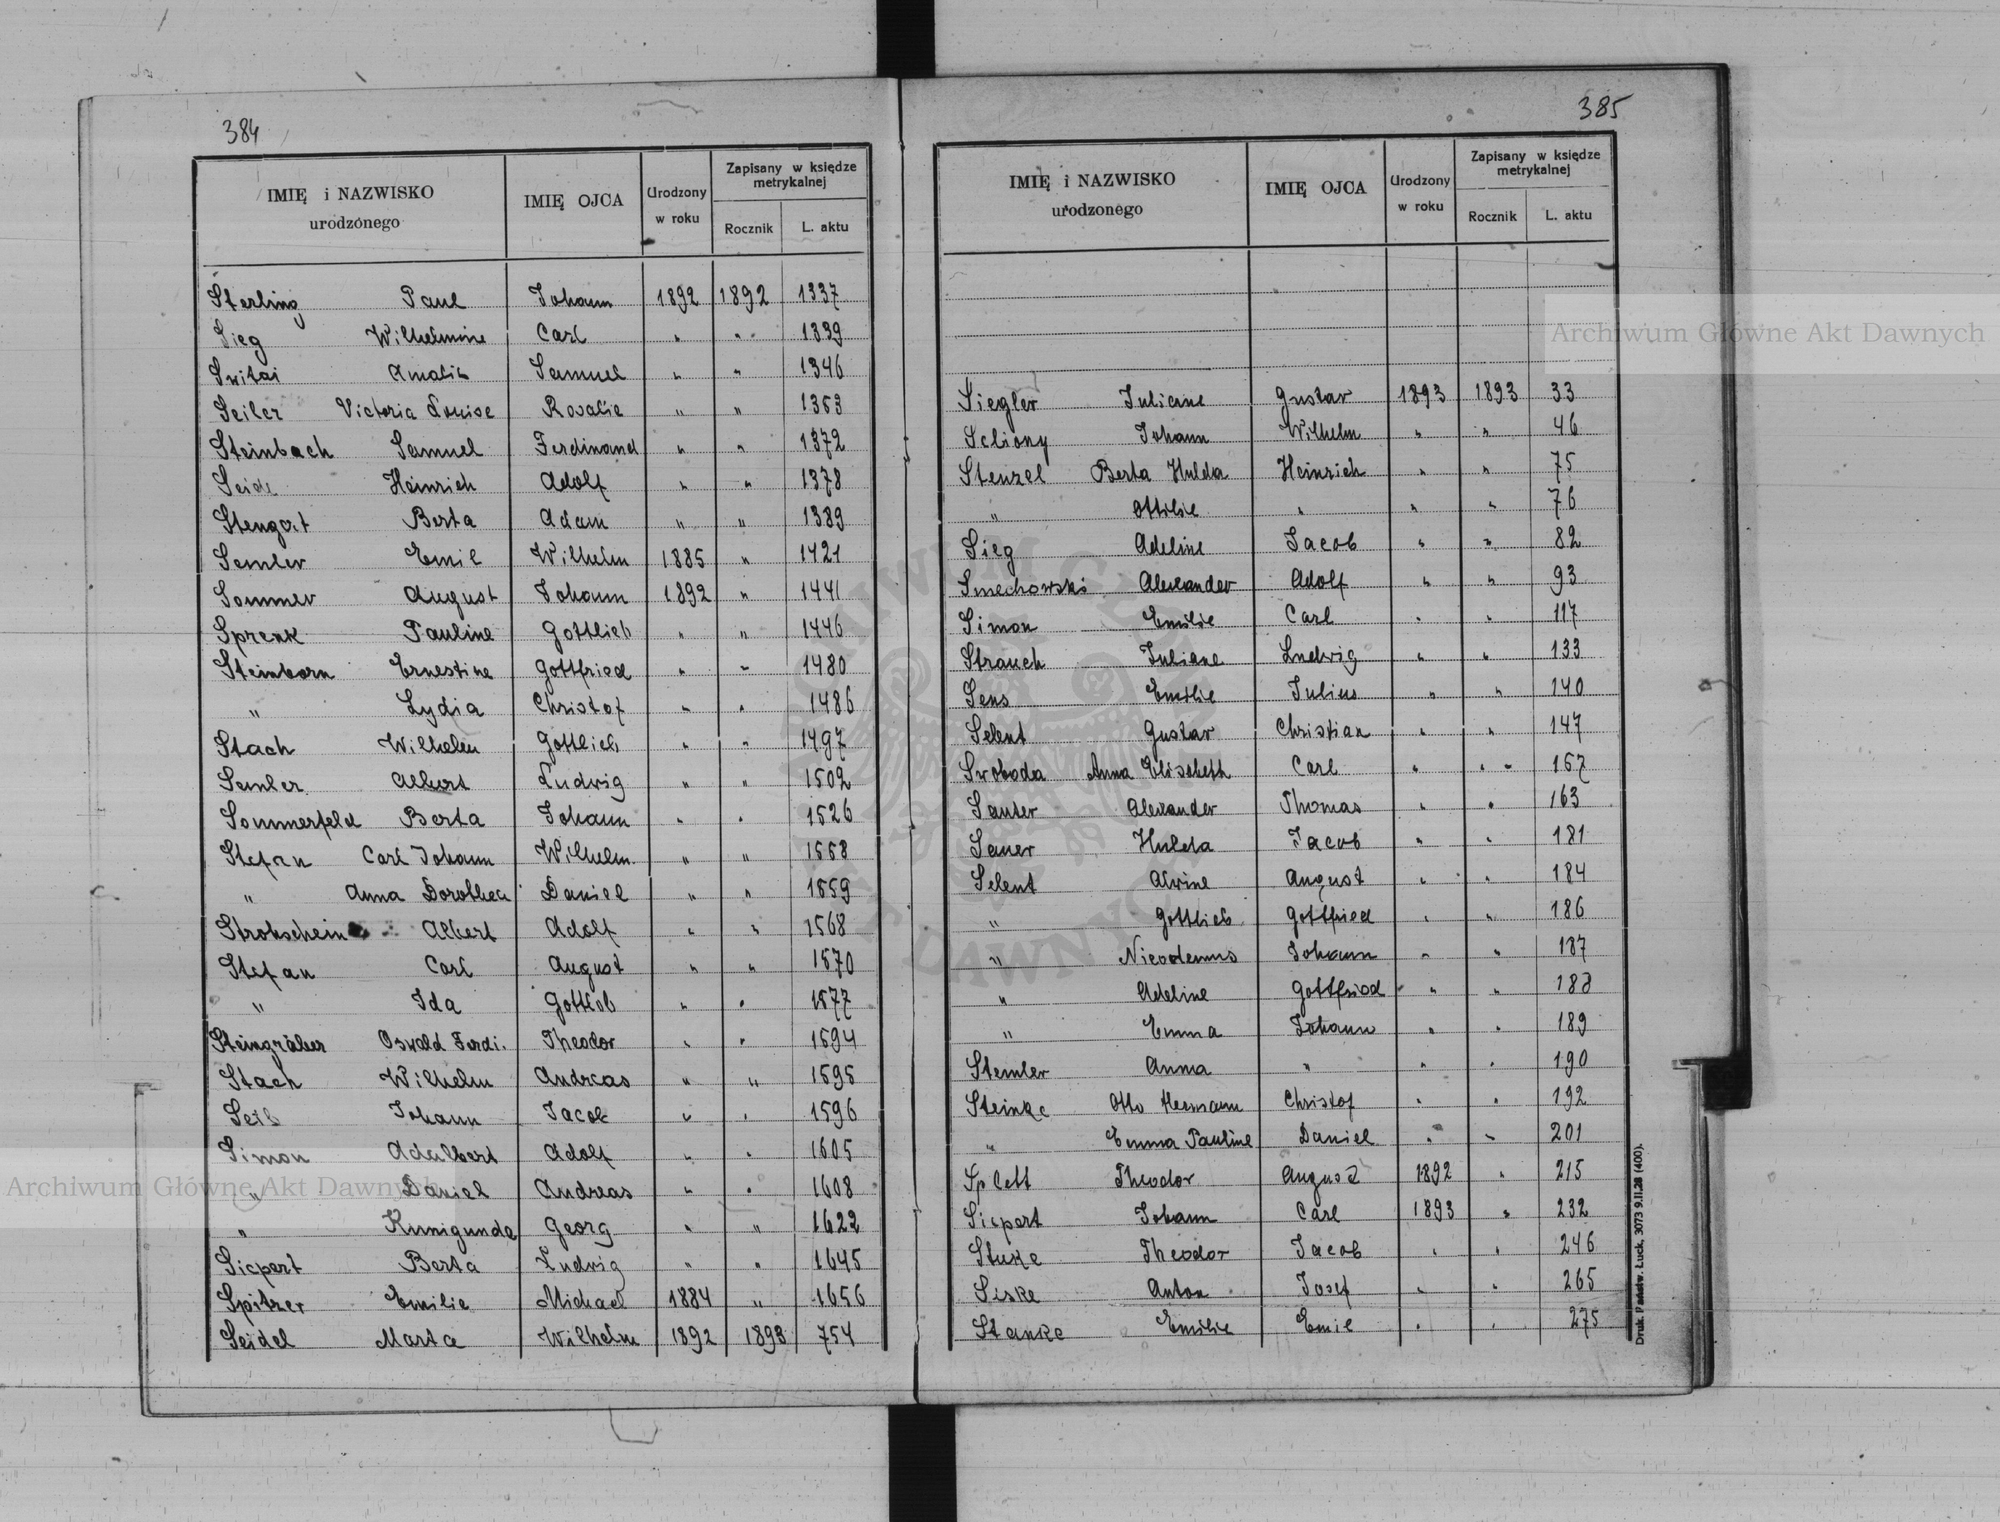 384
IMIĘ i NAZWISKO urodzonego IMIĘ OJCA Urodzony w roku Zapisany w księdze metrykalnej Rocznik L. aktu
Sterling Paul Johann 1892 1892 1337
Sieg Wilhelmine Carl " " 1339
Switai Amalie Samuel " " 1346
Seiler Victoria Louise Rosalie " " 1353
Steinbach Samuel Ferdinand " " 1372
Seide Heinrich Adolf " " 1378
Stengert Berta Adam " " 1389
Semler Emil Wilhelm 1885 " 1421
Sommer August Johann 1892 " 1441
Sprenk Pauline Gottlieb " " 1446
Steinborn Ernestine Gottfried " " 1480
" Lydia Christof " " 1486
Stach Wilhelm Gottlieb " " 1497
Semler Albert Ludwig " " 1502
Sommerfeld Berta Johann " " 1526
Stefan Carl Johann Wilhelm " " 1558
" Anna Dorothea Daniel " " 1559
Strohschein Albert Adolf " " 1568
Stefan Carl August " " 1570
" Ida Gottlob " " 1577
Steingräber Oswald Ferdi. Theodor " " 1594
Stach Wilhelm Andreas " " 1595
Seib Johann Jacob " " 1596
Simon Adalbert Adolf " " 1605
" Daniel Andreas " " 1608
" Kunigunde Georg " " 1622
Siepert Berta Ludwig " " 1645
Spitzer Emilie Michael 1884 " 1656
Seidel Marta Wilhelm 1892 1893 754
385
IMIĘ i NAZWISKO urodzonego IMIĘ OJCA Urodzony w roku Zapisany w księdze metrykalnej Rocznik L. aktu
Siegler Juliane Gustav 1893 1893 33
Scliony Johann Wilhelm " " 46
Stenzel Berta Hulda Heinrich " " 75
" Ottilie " " " 76
Sieg Adeline Jacob " " 82
Smechowski Alexander Adolf " " 93
Simon Emilie Carl " " 117
Strauch Juliane Ludwig " " 133
Sens Emilie Julius " " 140
Selent Gustav Christian " " 147
Swoboda Anna Elisabeth Carl " " 157
Sauter Alexander Thomas " " 163
Sauer Hulda Jacob " " 181
Selent Alvine August " " 184
" Gottlieb Gottfried " " 186
" Nicodemus Johann " " 187
" Adeline Gottfried " " 188
" Emma Johann " " 189
Stemler Anna " " " 190
Steinke Otto Hermann Christof " " 192
" Emma Pauline Daniel " " 201
Splett Theodor August 1892 " 215
Siepert Johann Carl 1893 " 232
Stuke Theodor Jacob " " 246
Seske Anton Josef " " 265
Stanke Emilie Emil " " 275
Druk. Państw. Łuck, 3073 9.II.28 (400).
Archiwum Główne Akt Dawnych
Archiwum Główne Akt Dawnych
ARCHIWUM GŁÓWNE AKT DAWNYCH